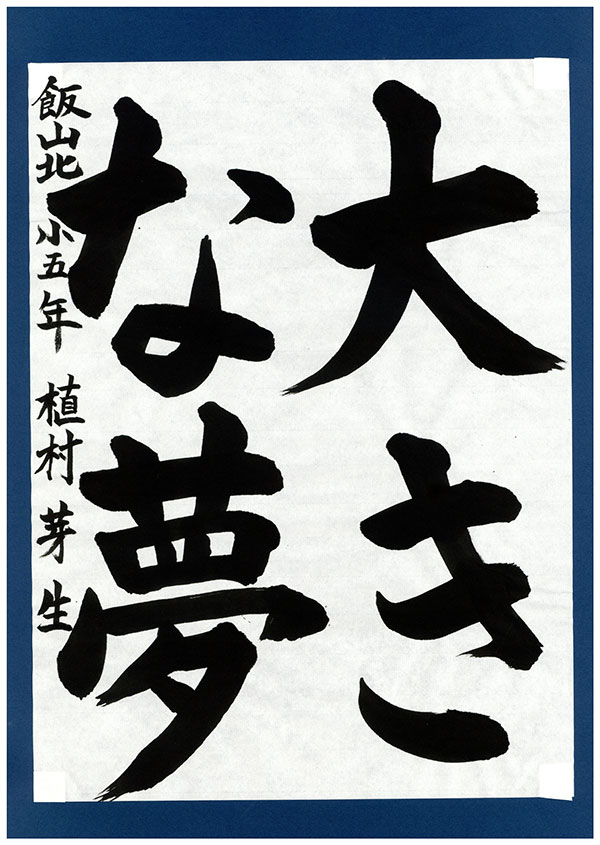 大き
な夢
飯山北小五年 植村芽生